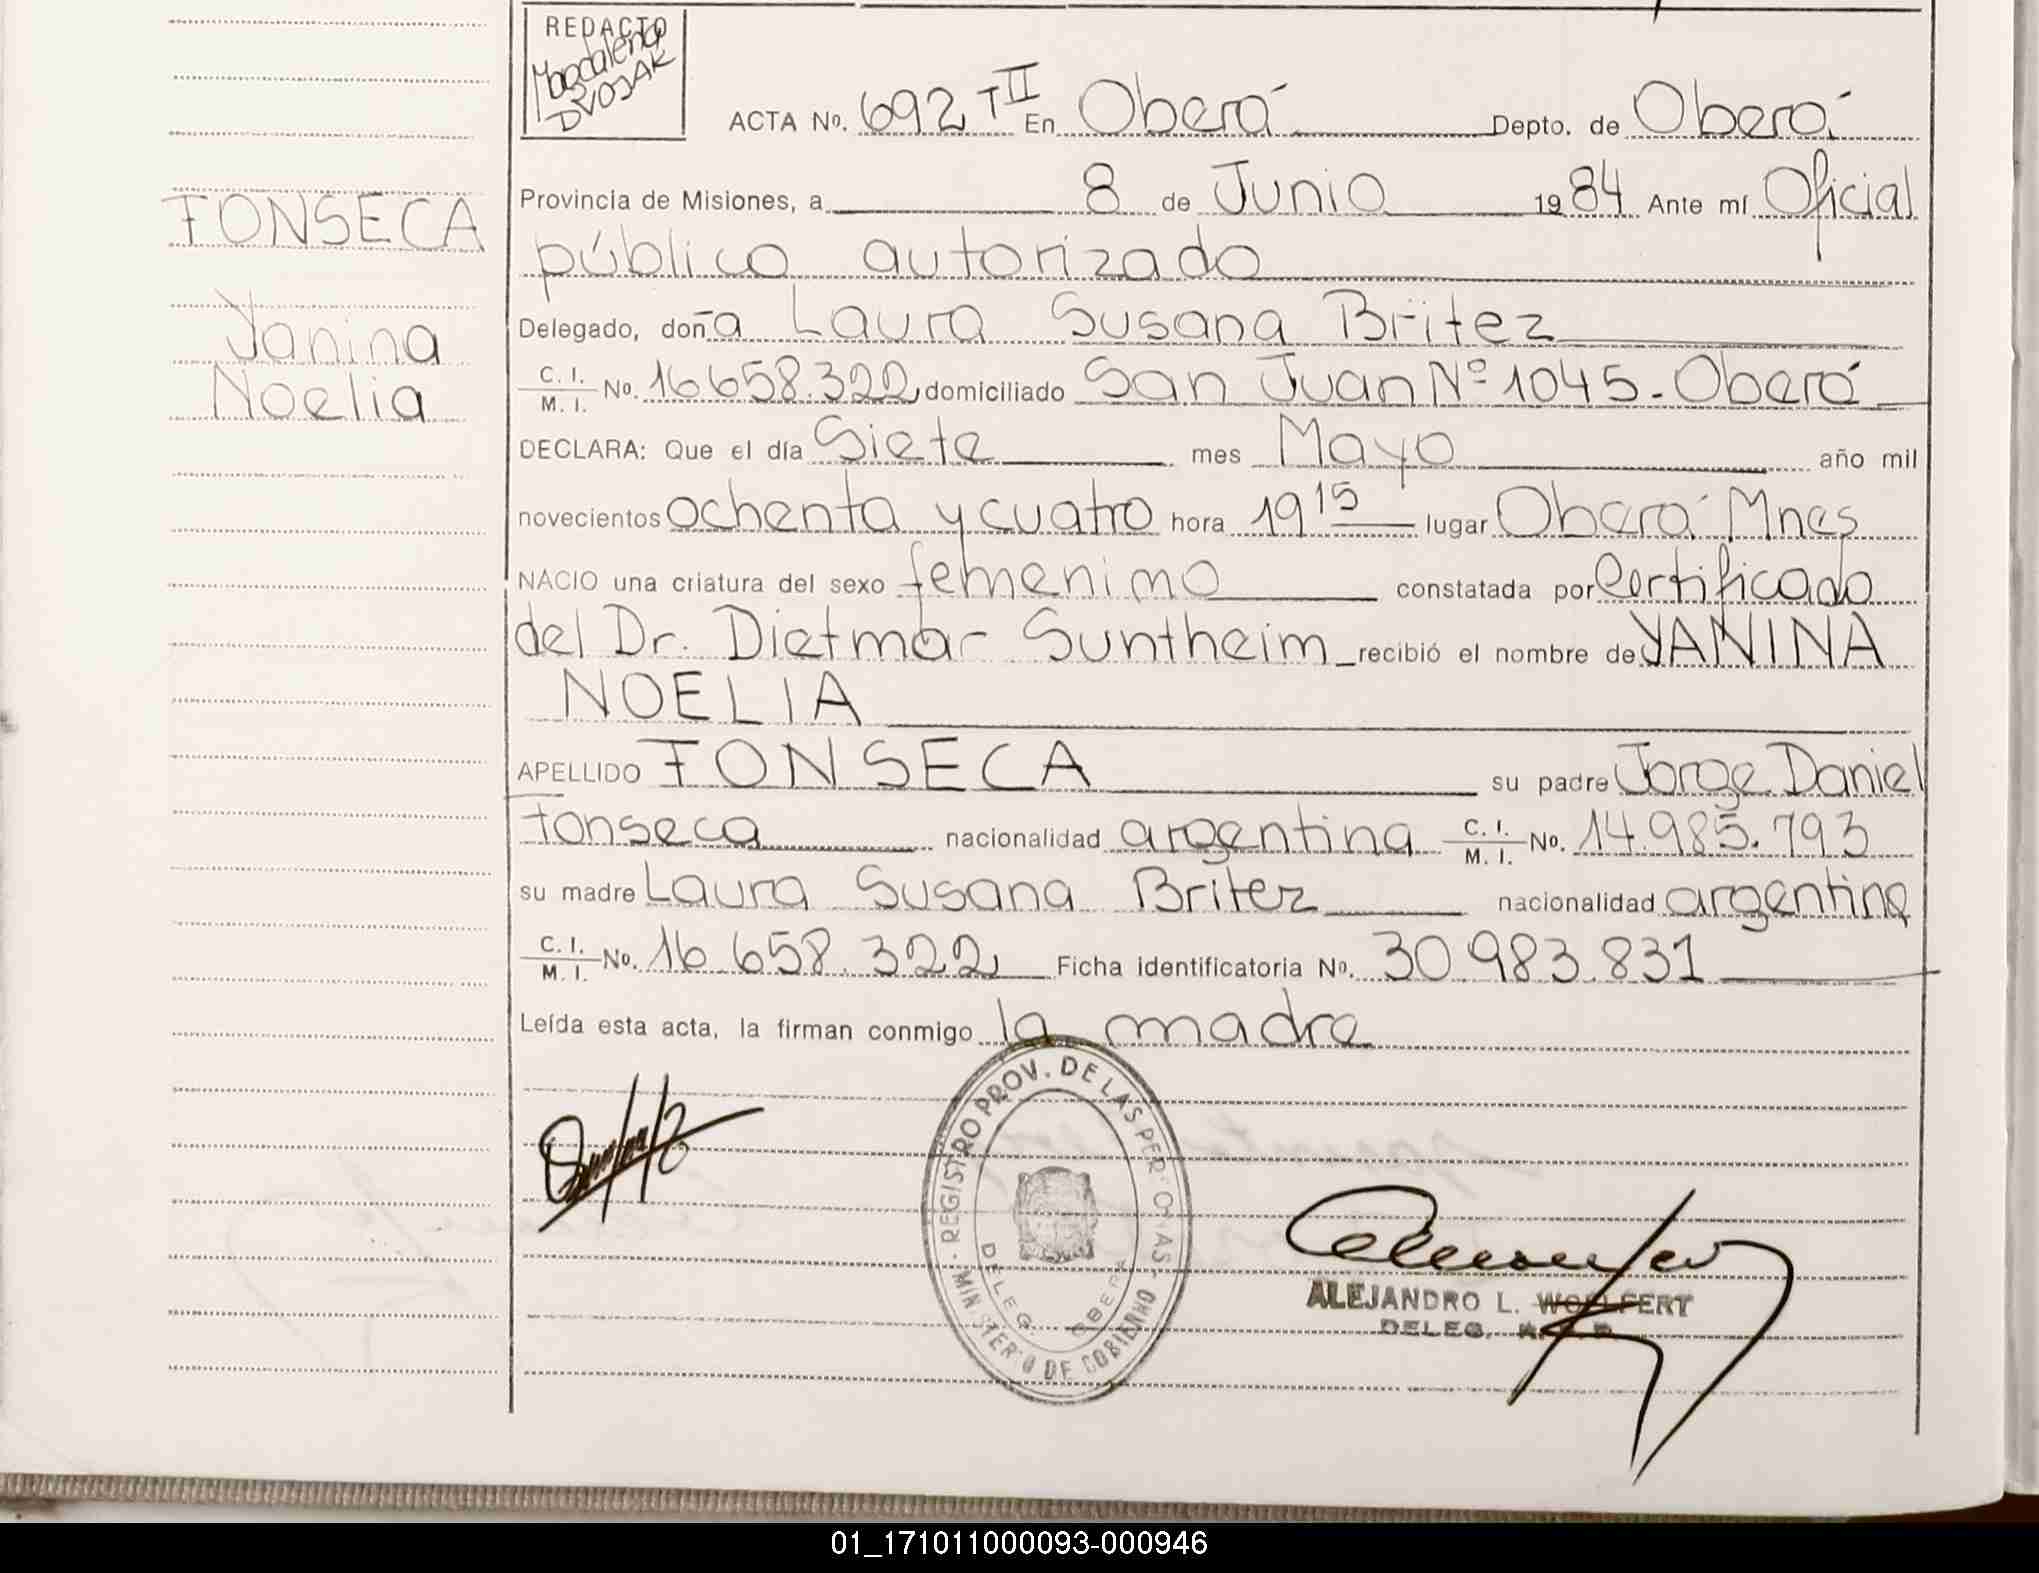 REDACTO
Magdalena
DVOJAK
ACTA No. 692 T II En Oberá Depto. de Oberá
Provincia de Misiones, a 8 de Junio 1984 Ante mí Oficial
público autorizado
FONSECA
Delegado, doña Laura Susana Britez
Yanina
C. I. M. I. No. 16 658.322, domiciliado San Juan Nº 1045. Oberá
Noelia
DECLARA: Que el día Siete mes Mayo año mil
novecientos ochenta y cuatro hora 19 15 lugar Oberá Mnes
NACIO una criatura del sexo femenino constatada por Certificado
del Dr. Dietmar Suntheim recibió el nombre de YANINA
NOELIA
APELLIDO FONSECA su padre Jorge Daniel
Fonseca nacionalidad argentina C. I. M. I. No. 14.985.793
su madre Laura Susana Britez nacionalidad argentina
C. I. M. I. No. 16 658.322, Ficha identificatoria No. 30.983.831
Leída esta acta, la firman conmigo la madre
REGISTRO PROV. DE LAS PERSONAS
DELEG. OBERA
MINISTERIO DE GOBIERNO
ALEJANDRO L. WOLFERT
DELEG.
01_171011000093-000946